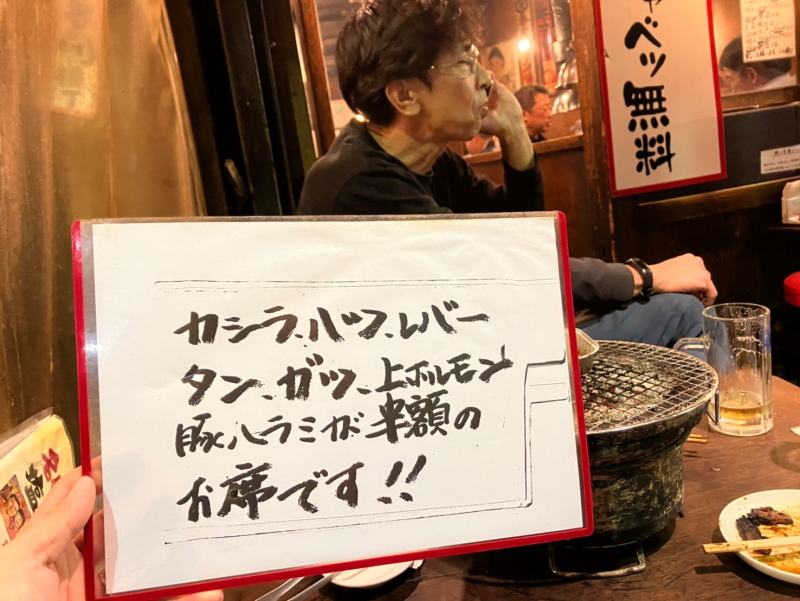 カシラ、ハツ、レバー
タン、ガツ、上ホルモン
豚ハラミが半額の
お席です!!
ベツ無料